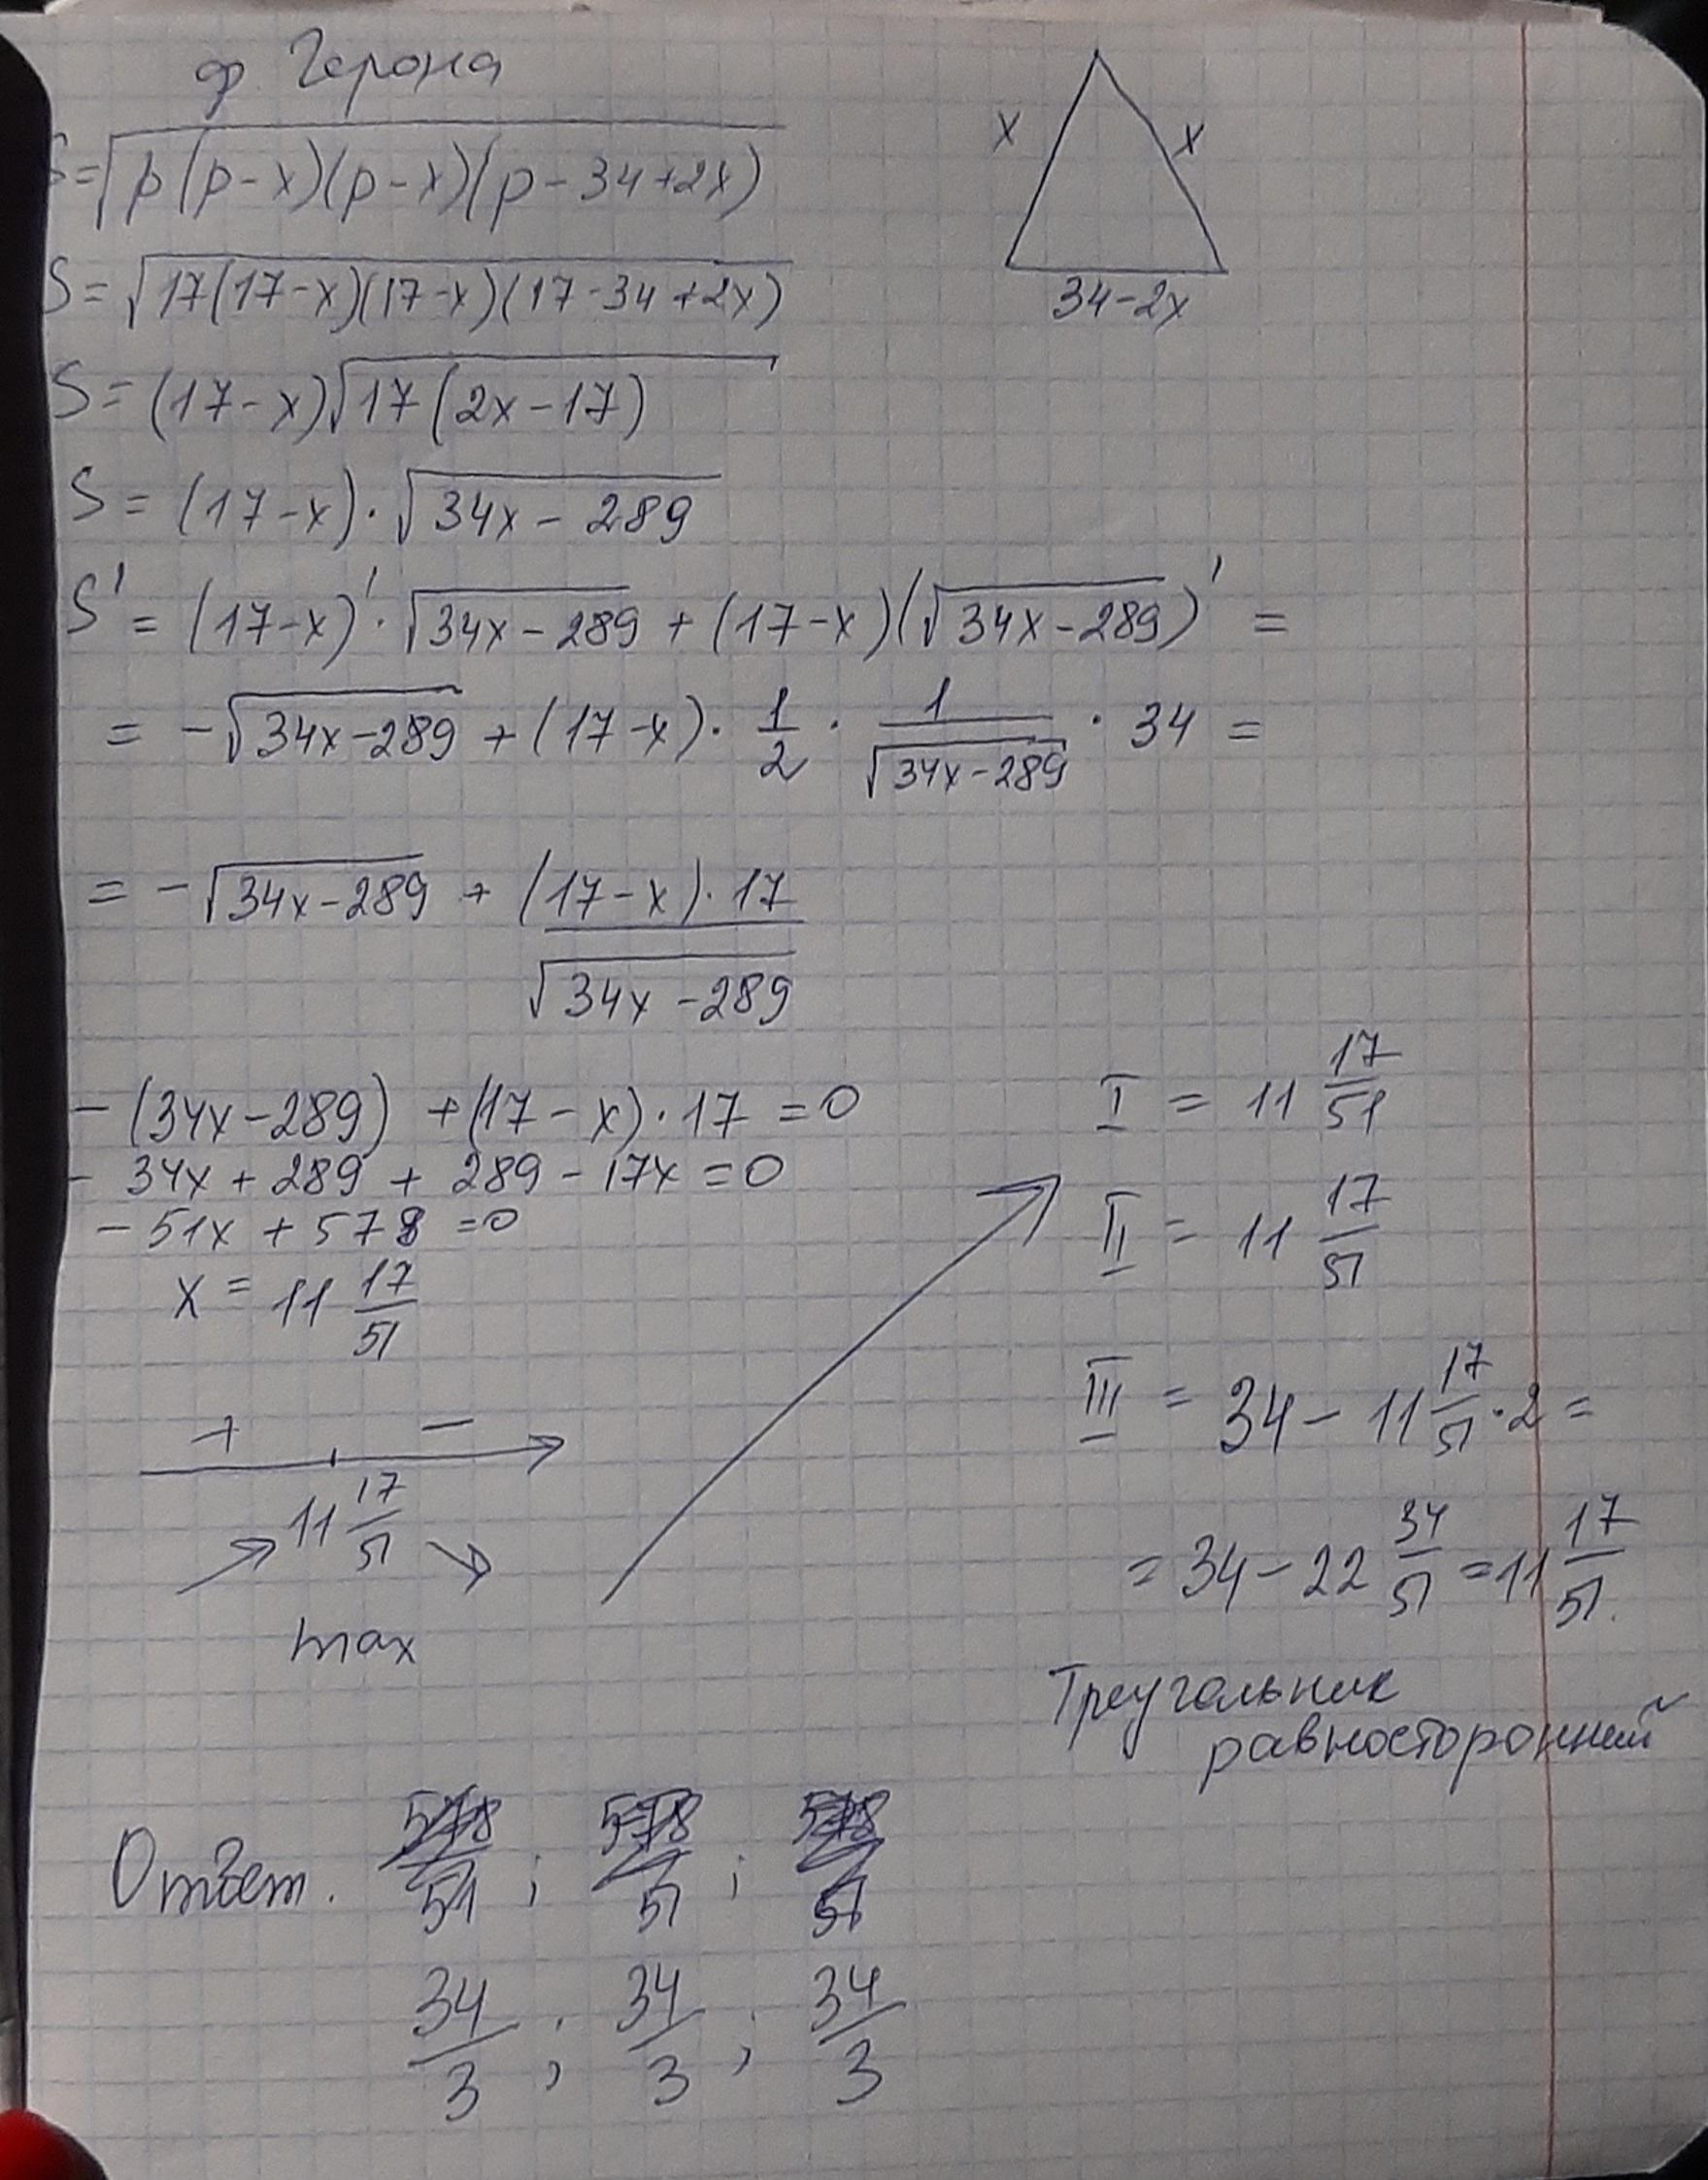 ф Герона
S = √(p(p-x)(p-x)(p-34+2x))
x
x
34-2x
S = √(17(17-x)(17-x)(17-34+2x))
S = (17-x)√(17(2x-17))
S = (17-x)·√(34x-289)
S' = (17-x)'·√(34x-289) + (17-x)(√(34x-289))' =
= -√(34x-289) + (17-x)· 1/2 · 1/√(34x-289) · 34 =
= -√(34x-289) + (17-x)·17/√(34x-289)
-(34x-289) + (17-x)·17 = 0
-34x + 289 + 289 - 17x = 0
-51x + 578 = 0
x = 11 17/51
+ -
11 17/51
max
I = 11 17/51
II = 11 17/51
III = 34 - 11 17/51 · 2 =
= 34 - 22 34/51 = 11 17/51.
Треугольник
равносторонний
Ответ. 578/51 ; 578/51 ; 578/51
34/3 ; 34/3 ; 34/3